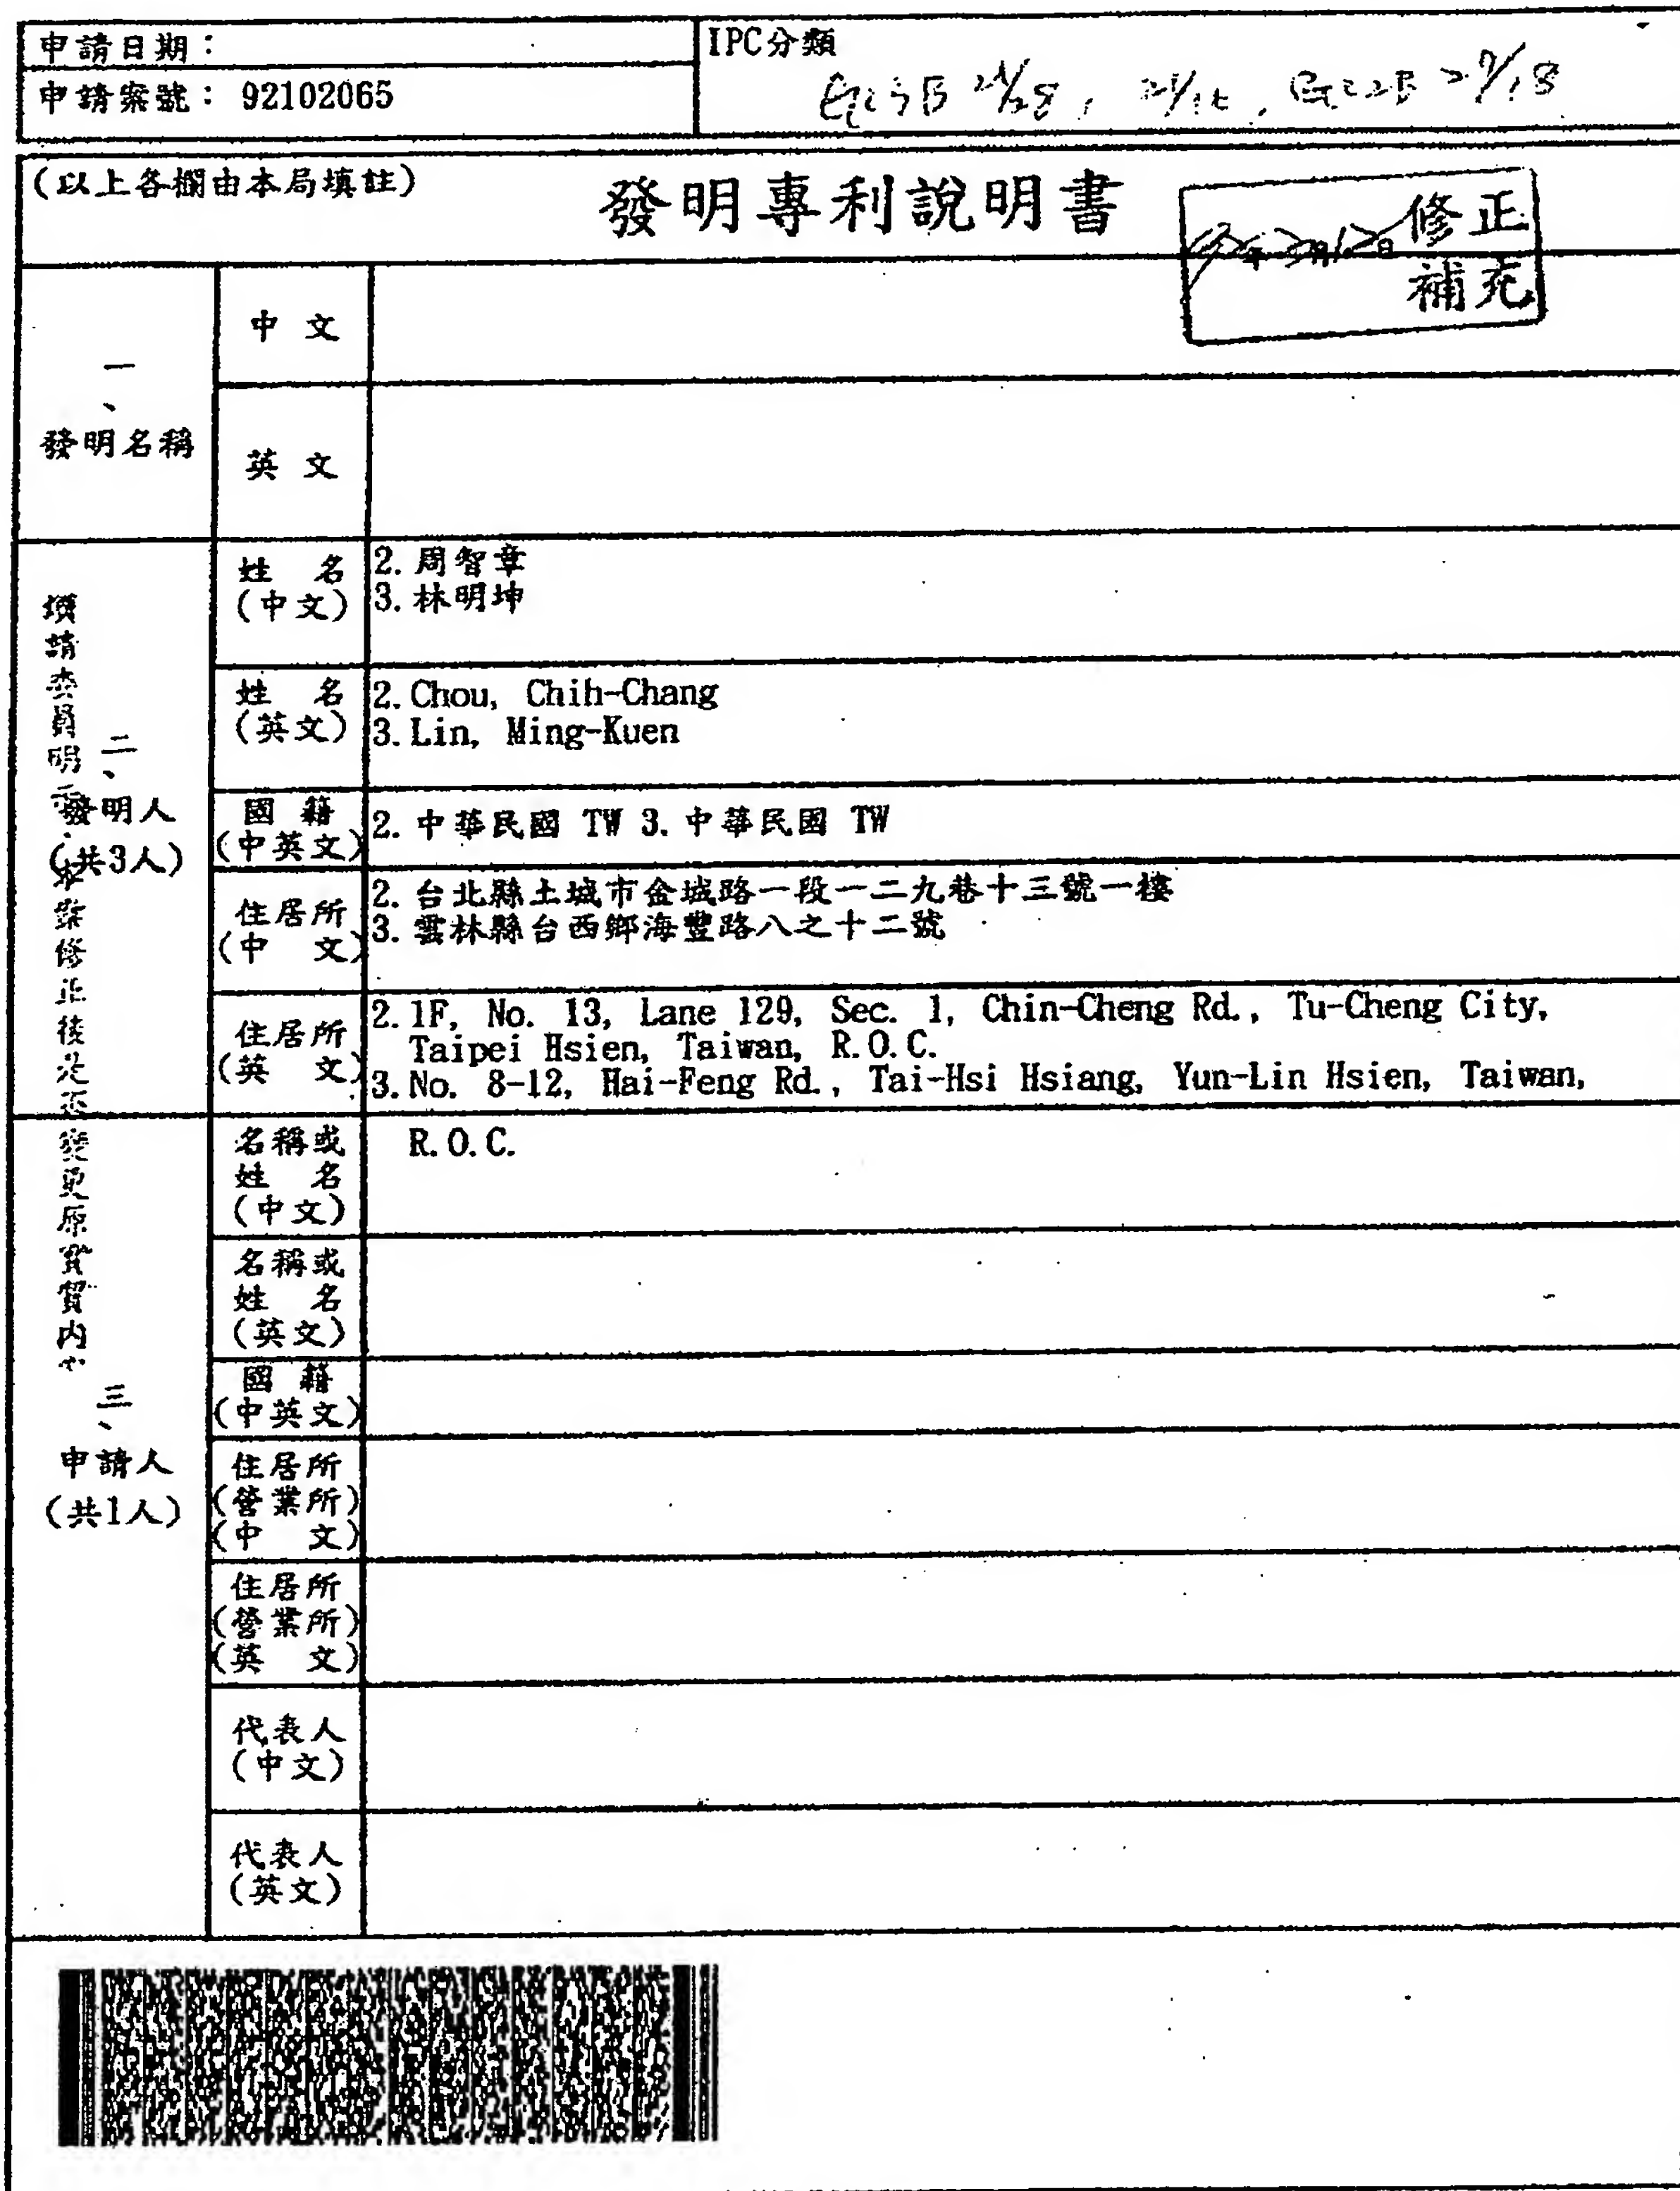 申請日期：
申請案號：92102065
IPC分類
(以上各欄由本局填註)
發明專利說明書
修正
補充
一、
發明名稱
中 文
英 文
二、
發明人
(共3人)
姓 名
(中文)
2. 周智章
3. 林明坤
姓 名
(英文)
2. Chou, Chih-Chang
3. Lin, Ming-Kuen
國 籍
(中英文)
2. 中華民國 TW 3. 中華民國 TW
住居所
(中 文)
2. 台北縣土城市金城路一段一二九巷十三號一樓
3. 雲林縣台西鄉海豐路八之十二號
住居所
(英 文)
2. 1F, No. 13, Lane 129, Sec. 1, Chin-Cheng Rd., Tu-Cheng City,
Taipei Hsien, Taiwan, R.O.C.
3. No. 8-12, Hai-Feng Rd., Tai-Hsi Hsiang, Yun-Lin Hsien, Taiwan,
R.O.C.
三、
申請人
(共1人)
名稱或
姓 名
(中文)
名稱或
姓 名
(英文)
國 籍
(中英文)
住居所
(營業所)
(中 文)
住居所
(營業所)
(英 文)
代表人
(中文)
代表人
(英文)